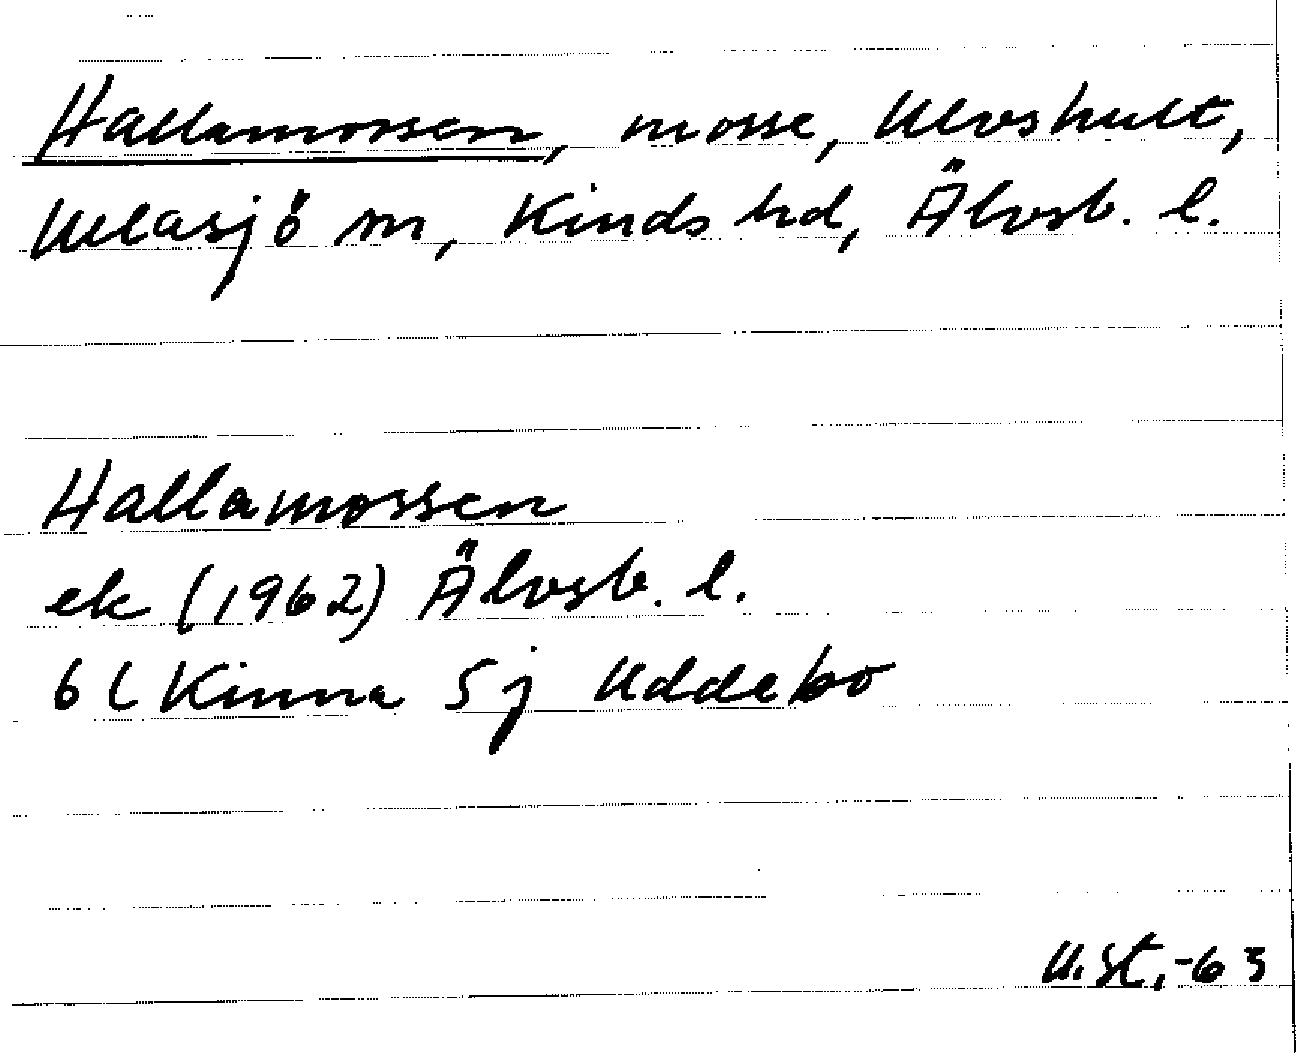 Hallamossen, mosse, Ulvshult,
Ullasjö sn, Kinds hd, Älvsb. l.
Hallamossen
ek (1962) Älvsb. l.
6 C Kinna 5 j Uddebo
U.St,-63